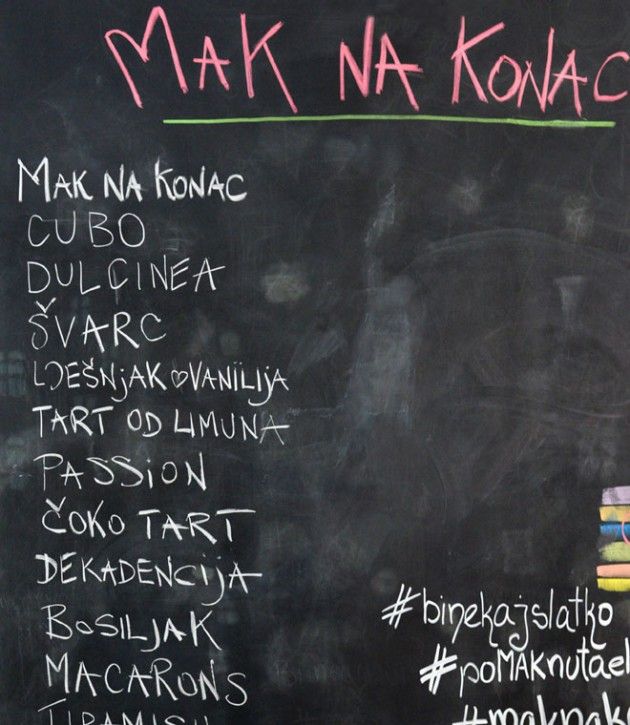 MAK NA KONAC
MAK NA KONAC
CUBO
DULCINEA
ŠVARC
LJEŠNJAK ♡ VANILIJA
TART OD LIMUNA
PASSION
ČOKO TART
DEKADENCIJA
BOSILJAK
MACARONS
TIRAMISU
#binekajslatko
#poMAKnutael
#maknak